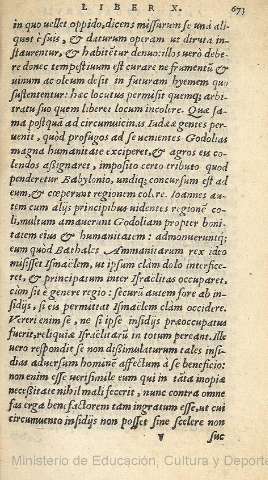 LIBER X. 673
in quo vellet oppido, dicens missurum se unà ali
quot è suis, & daturum operam ut diruta in-
staurentur, & habitētur denuo: illos verò debe-
re donec tempestiuum est curare ne frumentū &
uinum ac oleum desit in futuram hyemem quo
sustententur: hæc locutus permisit quemq; arbi-
tratu suo quem liberet locum incolere. Quæ fa-
ma postquā ad circumuicinas Iudææ gentes per-
uenit, quòd profugos ad se uenientes Godolias
magna humanitate exciperet, & agros eis co-
lendos assignaret, imposito certo tributo quod
penderetur Babylonio, undiq; concursum est ad
eum, & cœperunt regionem colere. Ioannes au-
tem cum alijs principibus uidentes regionē co-
li, multum amauerunt Godoliam propter boni-
tatem eius & humanitatem: admonueruntq;
eum quòd Bathales Ammanitarum rex ideo
misisset Ismaëlem, ut ipsum clàm dolo interfice-
ret, & principatum inter Israëlitas occuparet,
cùm sit è genere regio: securū autem fore ab in-
sidijs, si eis permittat Ismaëlem clàm occidere.
Vereri enim se, ne si ipse insidijs præoccupatus
fuerit, reliquiæ Israëlitarū in totum pereant. Ille
uero respondit se non dissimulaturum tales insi-
dias aduersum hominē affectum à se beneficio:
non enim esse uerisimile eum qui in tāta inopia
necessitate nihil mali fecerit, nunc contra omne
fas erga benefactorem tam ingratum esse, ut cui
circumuento insidijs non posset sine scelere non
v suc
Ministerio de Educación, Cultura y Deporte